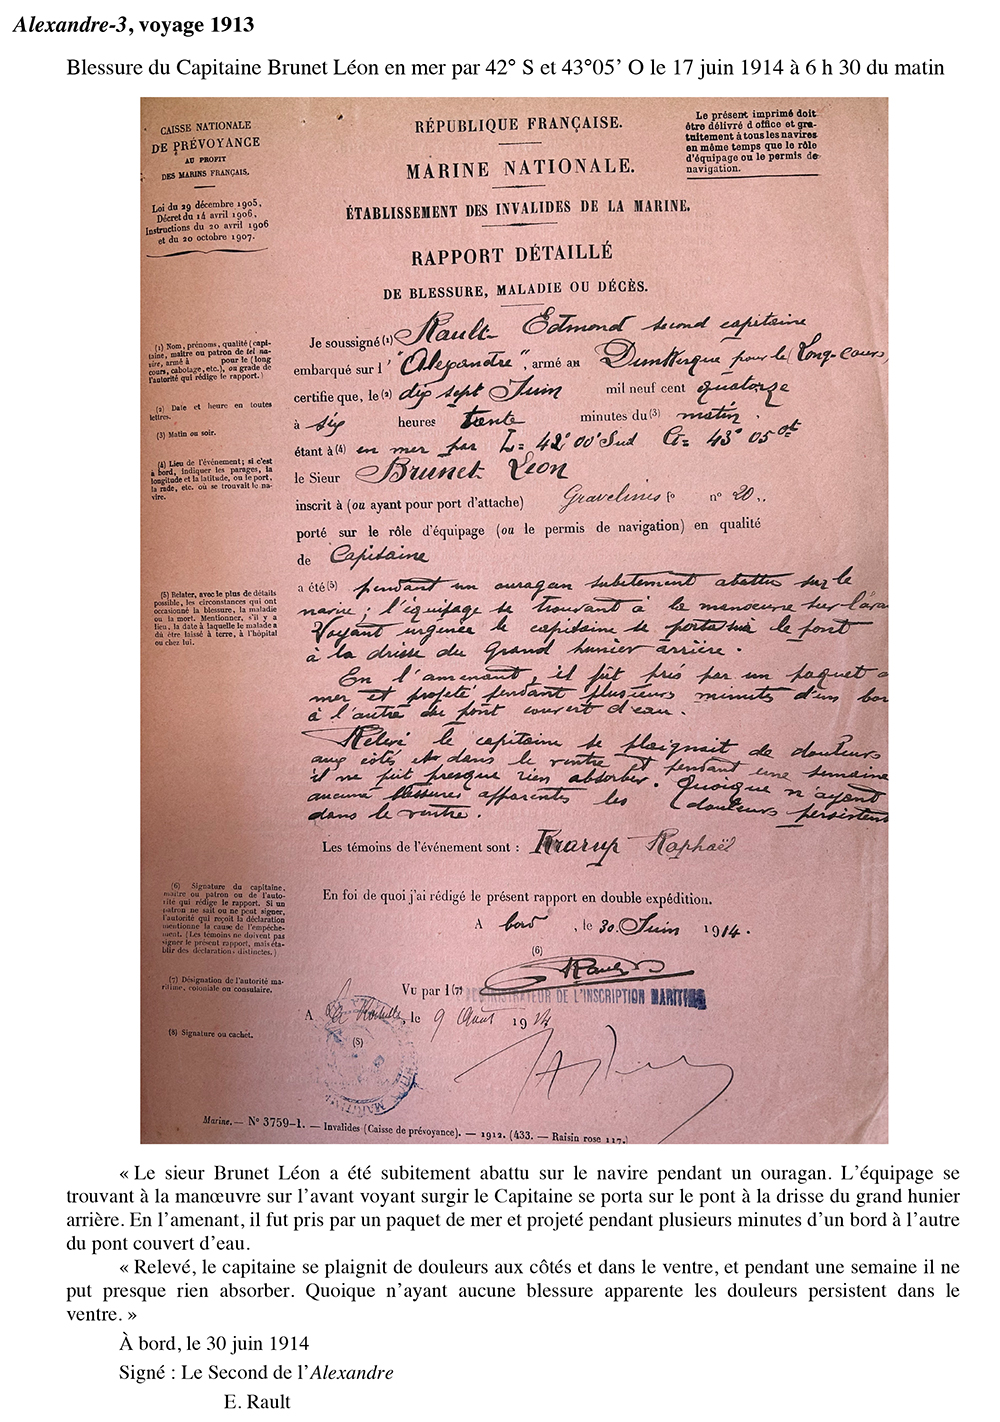 Alexandre-3, voyage 1913
Blessure du Capitaine Brunet Léon en mer par 42° S et 43°05’ O le 17 juin 1914 à 6 h 30 du matin
CAISSE NATIONALE
DE PRÉVOYANCE
AU PROFIT
DES MARINS FRANÇAIS.
Loi du 29 décembre 1905,
Décret du 14 avril 1906,
Instructions du 20 avril 1906
et du 20 octobre 1907.
RÉPUBLIQUE FRANÇAISE.
MARINE NATIONALE.
ÉTABLISSEMENT DES INVALIDES DE LA MARINE.
RAPPORT DÉTAILLÉ
DE BLESSURE, MALADIE OU DÉCÈS.
Le présent imprimé doit
être délivré d office et gra-
tuitement à tous les navires
en même temps que le rôle
d'équipage ou le permis de
navigation.
(1) Nom, prénoms, qualité (capi-
taine, maître ou patron de tel na-
vire, armé à pour le (long
cours, cabotage, etc.), ou grade de
l'autorité qui rédige le rapport.)
(2) Date et heure en toutes
lettres.
(3) Matin ou soir.
(4) Lieu de l'événement; si c'est
à bord, indiquer les parages, la
longitude et la latitude, ou le port,
la rade, etc. où se trouvait le na-
vire.
(5) Relater, avec le plus de détails
possible, les circonstances qui ont
occasionné la blessure, la maladie
ou la mort. Mentionner, s'il y a
lieu, la date à laquelle le malade a
dû être laissé à terre, à l'hôpital
ou chez lui.
(6) Signature du capitaine,
maître ou patron ou de l'auto-
rité qui rédige le rapport. Si un
patron ne sait ou ne peut signer,
l'autorité qui reçoit la déclaration
mentionne la cause de l'empêche-
ment. (Les témoins ne doivent pas
signer le présent rapport, mais éta-
blir des déclarations distinctes.)
(7) Désignation de l'autorité ma-
ritime, coloniale ou consulaire.
(8) Signature ou cachet.
Je soussigné (1) Rault Edmond second capitaine
embarqué sur l' "Alexandre", armé au Dunkerque pour le (Long-cours)
certifie que, le (2) dix sept Juin mil neuf cent quatorze
à six heures trente minutes du (3) matin.
étant à (4) en mer par L = 42° 00' Sud G = 43° 05 Ot
le Sieur Brunet Léon
inscrit à (ou ayant pour port d'attache) Gravelines f° n° 20..
porté sur le rôle d'équipage (ou le permis de navigation) en qualité
de Capitaine
a été (5) pendant un ouragan subitement abattu sur le
navire; l'équipage se trouvant à la manœuvre sur l'ava
Voyant urgence le capitaine se porta sur le pont
à la drisse du Grand hunier arrière.
En l'amenant, il fût pris par un paquet
mer et projeté pendant plusieurs minutes d'un bor
à l'autre du pont couvert d'eau.
Relevé le capitaine se plaignait de douleurs
aux côtés et dans le ventre et pendant une semaine
il ne put presque rien absorber. Quoique n'ayant
aucune blessures apparents les douleurs persistent
dans le ventre.
Les témoins de l'événement sont : Krarup Raphaël
En foi de quoi j'ai rédigé le présent rapport en double expédition.
A bord, le 30 Juin 1914.
(6)
Rault
Vu par l (7) ADMINISTRATEUR DE L'INSCRIPTION MARITIME
A La Rochelle, le 9 Août 1914
(8)
Marine. — N° 3759-1. — Invalides (Caisse de prévoyance). — 1912. (433. — Raisin rose 117.)
« Le sieur Brunet Léon a été subitement abattu sur le navire pendant un ouragan. L’équipage se
trouvant à la manœuvre sur l’avant voyant surgir le Capitaine se porta sur le pont à la drisse du grand hunier
arrière. En l’amenant, il fut pris par un paquet de mer et projeté pendant plusieurs minutes d’un bord à l’autre
du pont couvert d’eau.
« Relevé, le capitaine se plaignit de douleurs aux côtés et dans le ventre, et pendant une semaine il ne
put presque rien absorber. Quoique n’ayant aucune blessure apparente les douleurs persistent dans le
ventre. »
À bord, le 30 juin 1914
Signé : Le Second de l’Alexandre
E. Rault